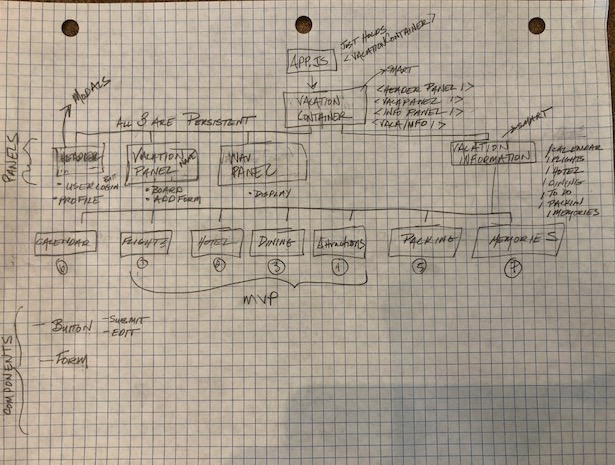 APP.JS
JUST HOLDS
<VACATIONCONTAINER/>
MODALS
VACATION
CONTAINER
SMART
<HEADER PANEL/>
<VACAPANEL/>
<INFO PANEL/>
<VACA/NFO/>
ALL 3 ARE PERSISTENT
PANELS
HEADER
• USER LOGIN
• PROFILE
VACATION
PANEL
• BOARD
• ADD FORM
NAV
PANEL
• DISPLAY
VACATION
INFORMATION
SMART
/CALENDAR
/FLIGHTS
/HOTEL
/DINING
/TO DO
/PACKIN
/MEMORIES
CALENDAR
FLIGHTS
HOTEL
DINING
PACKING
MEMORIES
⑥
③
④
⑤
⑦
MVP
COMPONENTS
— BUTTON
— SUBMIT
— EDIT
— FORM